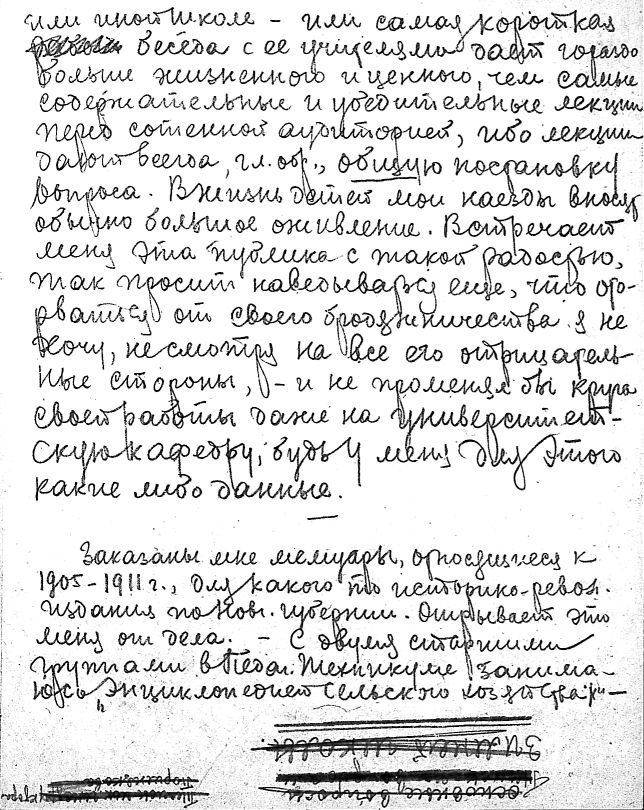 или иной школе – или самая короткая
беседа с ее учителями дает гораздо
больше жизненного и ценного, чем самые
содержательные и убедительные лекции
перед сотенной аудиторией, ибо лекции
дают всегда, гл. обр., общую постановку
вопроса. В жизнь детей мои наезды вносят
обычно большое оживление. Встречает
меня эта публика с такой радостью,
так просит наведываться еще, что ото-
рваться от своего бродяжничества я не
хочу, несмотря на все его отрицатель-
ные стороны, – и не променял бы круга
своей работы даже на университет-
скую кафедру, будь у меня для этого
какие либо данные.
Заказаны мне мемуары, относящиеся к
1905–1911 г., для какого то историко-револ.
издания по Нов. губернии. Отрывает это
меня от дела. – С двумя старшими
группами в Педаг. Техникуме занима-
юсь „Энциклопедией Сельского хозяйства" –
основные вопросы